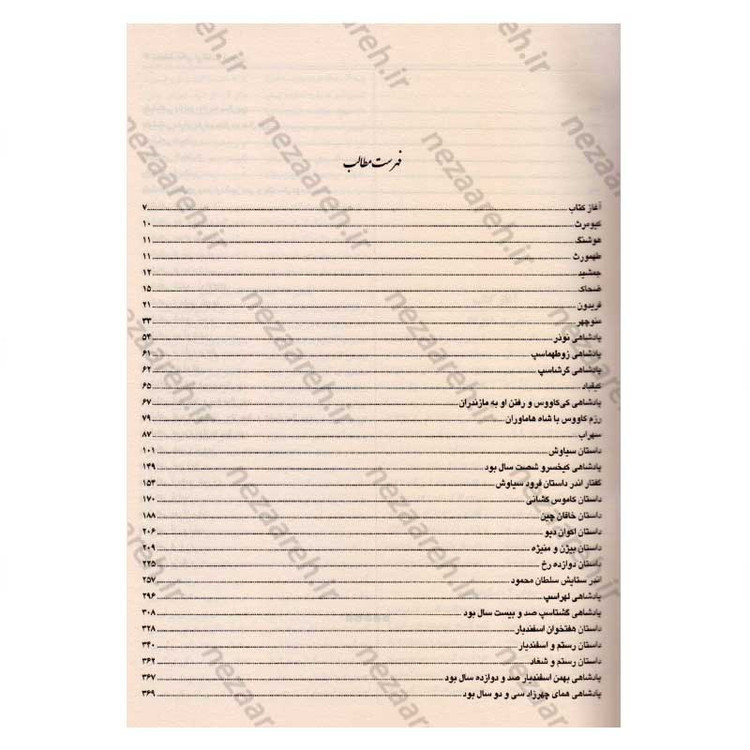 فهرست مطالب
آغاز کتاب ۷
کیومرث ۱۰
هوشنگ ۱۱
طهمورث ۱۱
جمشید ۱۲
ضحاک ۱۵
فریدون ۲۱
منوچهر ۳۳
پادشاهی نوذر ۵۴
پادشاهی زوطهماسپ ۶۱
پادشاهی گرشاسپ ۶۲
کیقباد ۶۵
پادشاهی کی‌کاووس و رفتن او به مازندران ۶۷
رزم کاووس با شاه هاماوران ۷۹
سهراب ۸۷
داستان سیاوش ۱۰۱
پادشاهی کیخسرو شصت سال بود ۱۴۹
گفتار اندر داستان فرود سیاوش ۱۵۴
داستان کاموس کشانی ۱۷۰
داستان خاقان چین ۱۸۸
داستان اکوان دیو ۲۰۶
داستان بیژن و منیژه ۲۰۹
داستان دوازده رخ ۲۲۵
اندر ستایش سلطان محمود ۲۵۷
پادشاهی لهراسپ ۲۹۶
پادشاهی گشتاسپ صد و بیست سال بود ۳۰۸
داستان هفتخوان اسفندیار ۳۲۸
داستان رستم و اسفندیار ۳۴۰
داستان رستم و شغاد ۳۶۲
پادشاهی بهمن اسفندیار صد و دوازده سال بود ۳۶۷
پادشاهی همای چهرزاد سی و دو سال بود ۳۶۹
nezaareh.ir